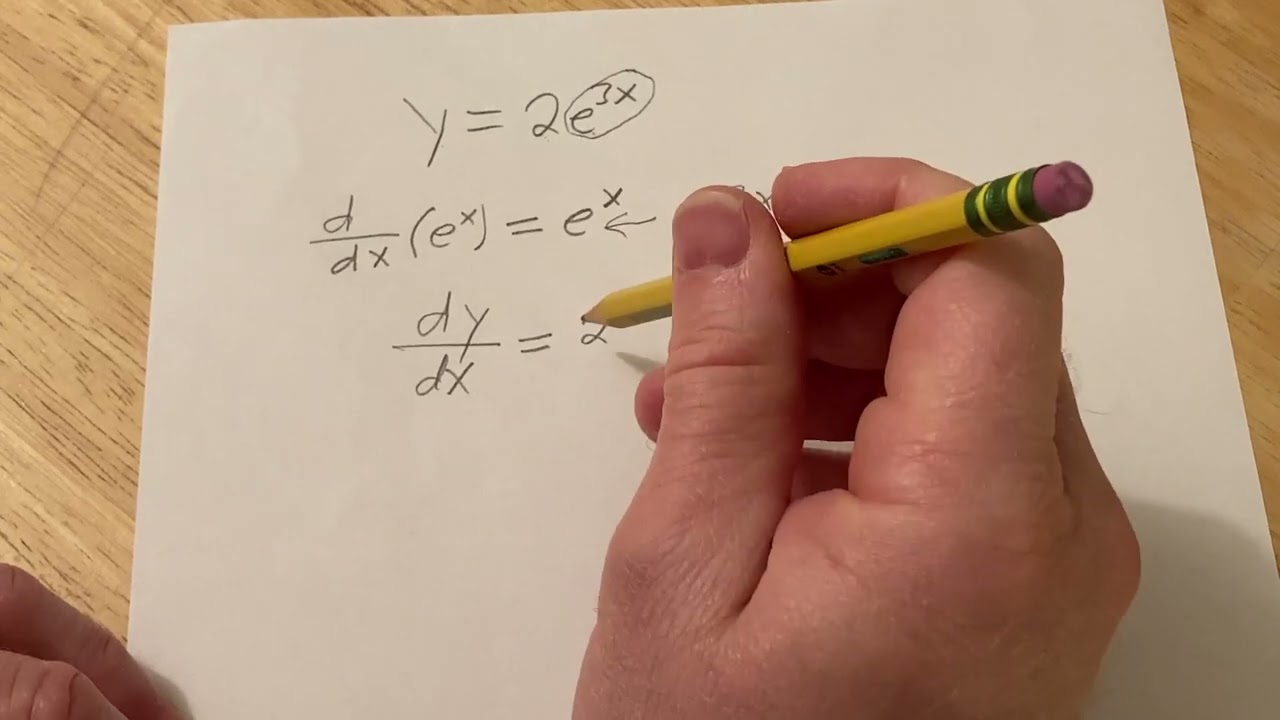 y = 2e^{3x}
\frac{d}{dx}(e^x) = e^x ←
\frac{dy}{dx} = 2